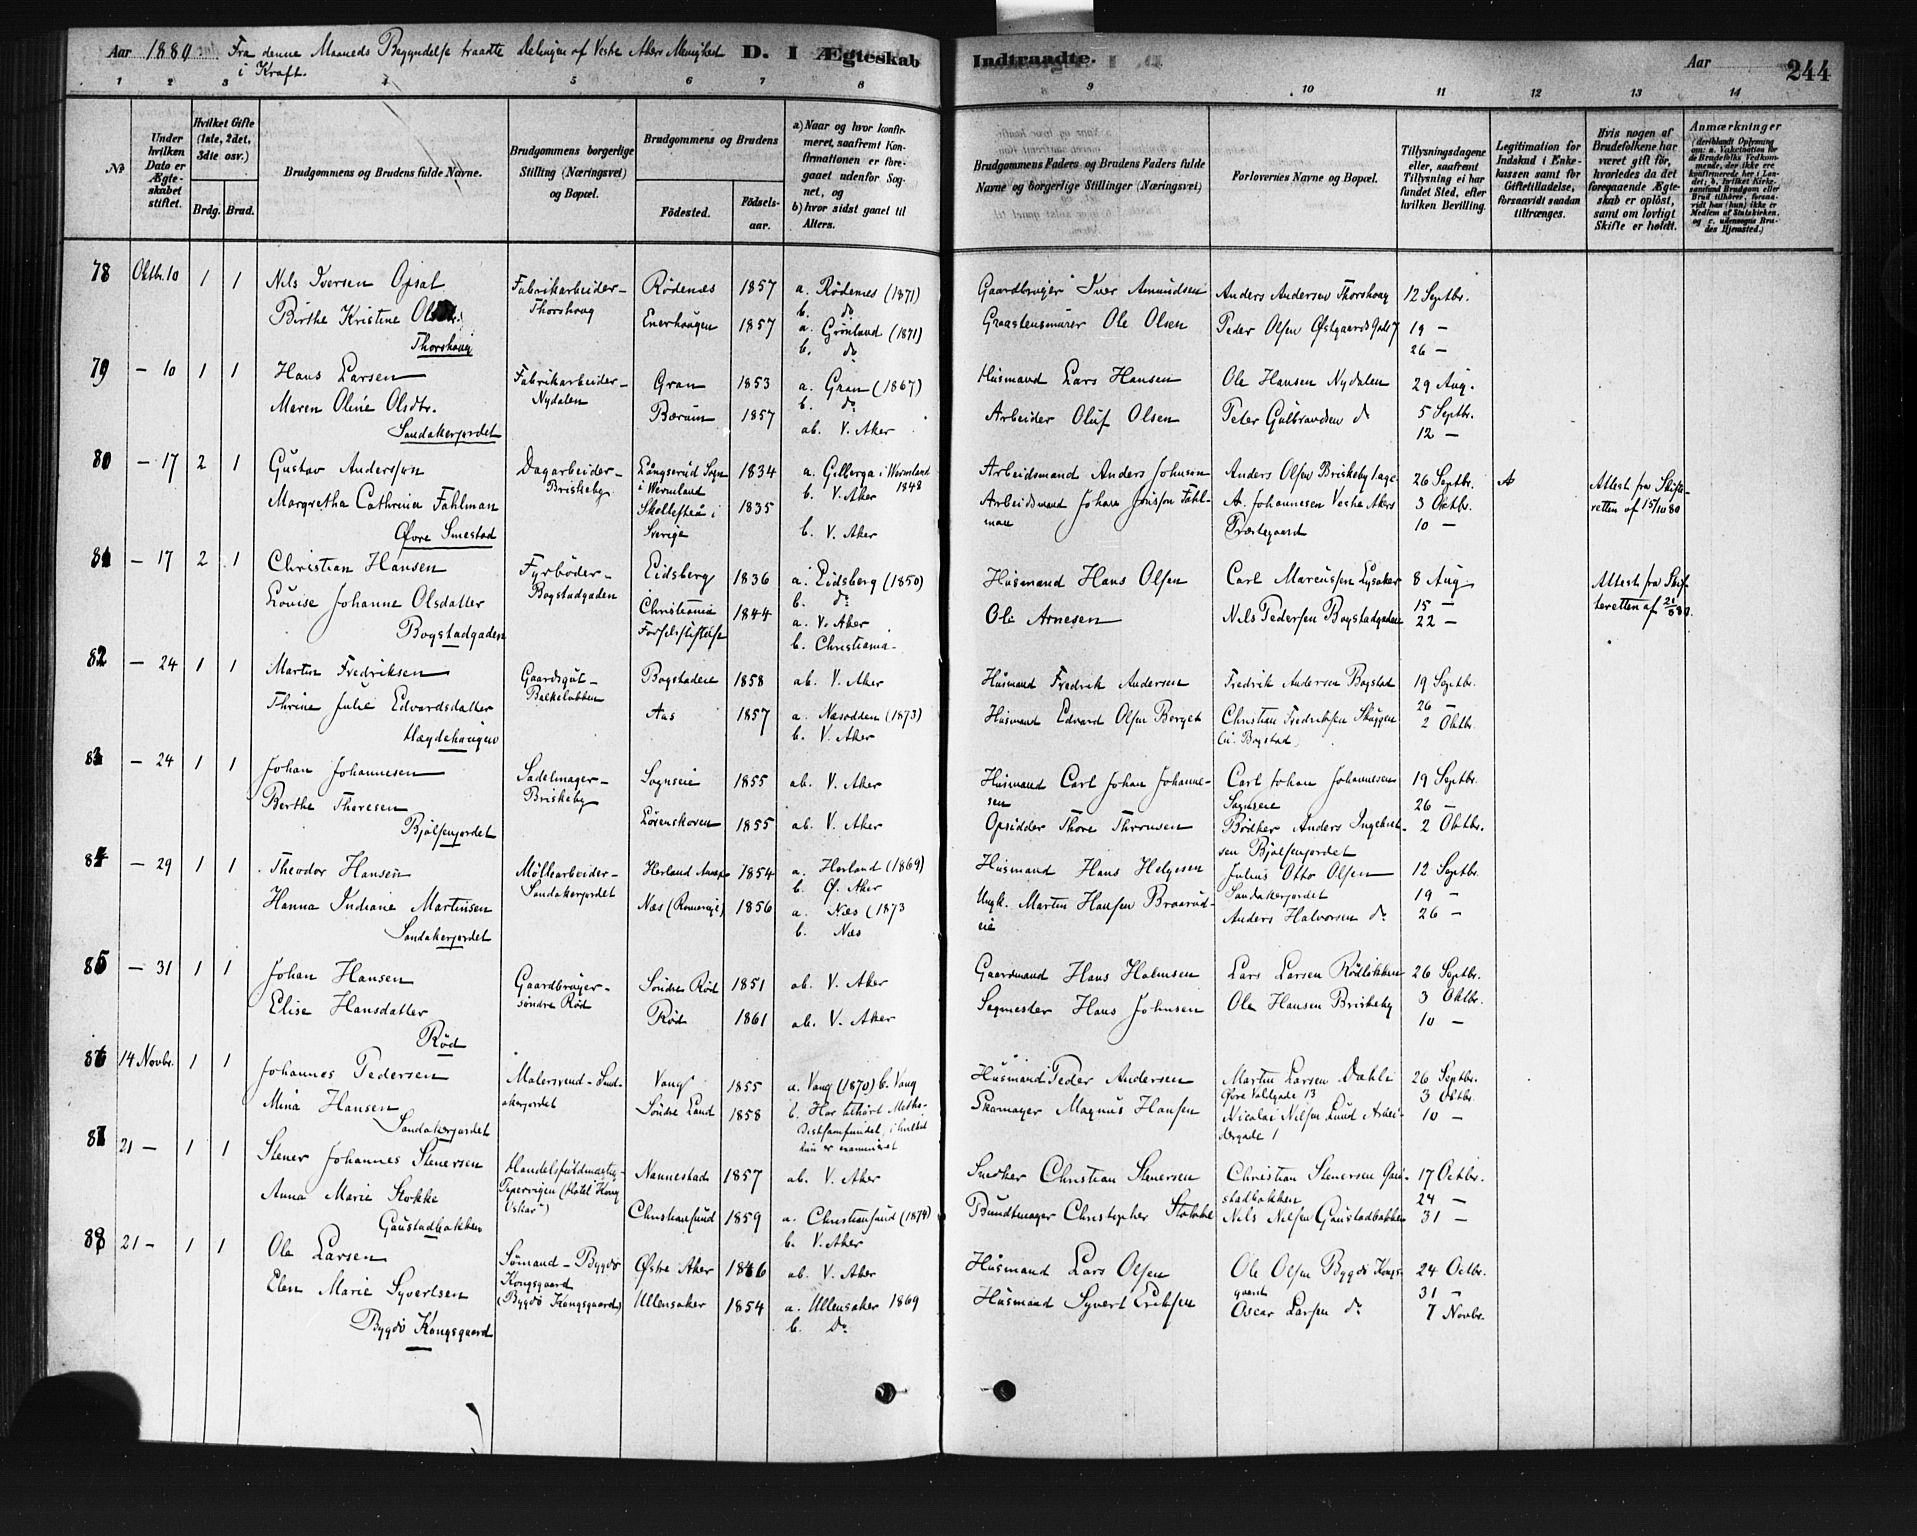 Aar 1880 Fra denne Maaneds Begyndelse traadte Delingen af Vestre Akers Menighed i Kraft.
D. I Ægteskab Indtraadte.
Aar
244
1 2 3 4 5 6 7 8 9 10 11 12 13 14
No
Under hvilken Dato er Ægteskabet stiftet.
Hvilket Gifte (1ste, 2det, 3die osv.)
Brdg. Brud.
Brudgommens og Brudens fulde Navne.
Brudgommens borgerlige Stilling (Næringsvei) og Bopæl.
Brudgommens og Brudens
Födested.
Födsels-aar.
a) Naar og hvor konfirmeret, saafremt Konfirmationen er foregaaet udenfor Sognet, og
b) hvor sidst gaaet til Alters.
Brudgommens Faders og Brudens Faders fulde Navne og borgerlige Stillinger (Næringsvei)
Forlovernes Navne og Bopæl.
Tillysningsdagene eller, saafremt Tillysning ei har fundet Sted, efter hvilken Bevilling.
Legitimation for Indskud i Enkekassen samt for Giftetilladelse, forsaavidt saadan tiltrænges.
Hvis nogen af Brudefolkene har været gift før, hvorledes da det foregaaende Ægteskab er oplöst, samt om lovligt Skifte er holdt.
Anmærkninger
78 Oktbr. 10 1 1 Nils Iversen Opsal Fabrikarbeider - Thorshaug Rødenæs 1857 a. Rødenes (1871) b. do Gaardbruger Iver Amundsen Anders Andersen Thorshaug 12 Septbr.
Birthe Kristine Enerhaugen 1857 a. Grønland (1871) b. do Graastensmurer Ole Olsen Peder Olsen Østgaards Gade 7 19 —
Thorshaug 26 —
79 — 10 1 1 Hans Larsen Fabrikarbeider - Nydalen Gran 1853 a. Gran (1867) b. do Husmand Lars Hansen Ole Hansen Nydalen 29 Aug.
Maren Oline Olsdtr. Bærum 1857 ab. V. Aker Arbeider Oluf Olsen Peder Gulbrandsen do 5 Septbr.
Sandakerjordet 12 —
80 — 17 2 1 Gustav Andersson Dagarbeider - Briskeby Långserud Sogn i Wermland 1834 a. Gillberga i Wermland 1848 b. V. Aker Arbeidsmand Anders Johnson Anders Olsen Briskeby 26 Septbr. Attest fra Skifteretten af 15/10 80
Margretha Cathrina Fahlman Skellefteå i Sverige 1835 b. V. Aker Arbeidsmand Johan Jonsson Fahlman A. Johannesen Vestre Akers Præstegaard 3 Oktbr.
Øvre Smestad 10 —
81 — 17 2 1 Christian Hansen Fyrbøder - Bogstadgaden Eidsberg 1836 a. Eidsberg (1850) b. do Husmand Hans Olsen Carl Marcussen Lysaker 8 Aug. Attest fra Skifteretten af
Louise Johanne Olsdatter Christiania Fødselsstiftelse 1844 a. V. Aker b. Christiania Ole Arnesen Nils Pedersen Bogstadgaden 15 —
Bogstadgaden 22 —
82 — 24 1 1 Martin Fredriksen Gaardsgut - Bakkelukken Bogstadeie 1858 ab. V. Aker Husmand Fredrik Andersen Fredrik Andersen Bogstad 19 Septbr.
Thrine Julie Edvardsdatter Aas 1857 a. Næsodden (1873) b. V. Aker Husmand Edvard Olsen Berget Christian Fredriksen Skyggen (u. Bogstad) 26 —
Høydehaugen 2 Oktbr.
83 — 24 1 1 Johan Johannesen Sadelmager - Briskeby Sognseie 1855 ab. V. Aker Husmand Carl Johan Johannesen Carl Johan Johannesen Sognseie 19 Septbr.
Berthe Thoresen Lørenskoven 1855 ab. V. Aker Opsidder Thore Thronsen Bødker Anders Ingebretsen Bjølsenjordet 26 —
Bjølsenjordet 2 Oktbr.
84 — 29 1 1 Theodor Hansen Møllearbeider - Sandakerjordet Herland 1854 a. Herland (1869) b. Ø. Aker Husmand Hans Helgesen Julius Otto Olsen Sandakerjordet 12 Septbr.
Hanna Indiane Martinsen Næs (Romerige) 1856 a. Næs (1873 b. Næs Ungk. Martin Hansen Braarudeie Anders Halvorsen do 19 —
Sandakerjordet 26 —
85 — 31 1 1 Johan Hansen Gaardbruger - søndre Rød Søndre Rød 1851 ab. V. Aker Gaardmand Hans Halmsen Lars Larsen Rødløkken 26 Septbr.
Elise Hansdatter Rød 1861 ab. V. Aker Sagmester Hans Johnsen Ole Hansen Briskeby 3 Oktbr.
Rød 10 —
86 14 Novbr. 1 1 Johannes Pedersen Malersvend - Sandakerjordet Vang 1855 a. Vang (1870) b. Vang Husmand Peder Andersen Martin Larsen Dæhli Øvre Voldgade 13 26 Septbr.
Mina Hansen Søndre Land 1858 b. Har tilhørt Methodistsamfundet, i hvilket hun er examineret Skomager Magnus Hansen Nicolai Nilsen Lund Arbeidergade 1 3 Oktbr.
Sandakerjordet 10 —
87 21 — 1 1 Stener Johannes Stenersen Handelsfuldmægtig - Pipervigen (Hotel Kong Oskar") Nannestad 1857 ab. V. Aker Snedker Christian Stenersen Christian Stenersen Gaustadbakken 17 Octbr.
Anna Marie Stokke Christiansund 1859 a. Christiansund (1874) b. V. Aker Bundtmager Christopher Stokke Nils Nilsen Gaustadbakken 24 —
Gaustadbakken 31 —
88 21 — 1 1 Ole Larsen Sømand - Bygdø Kongsgaard (Bygdø Kongsgaard) Østre Aker 1846 ab. V. Aker Husmand Lars Olsen Ole Olsen Bygdø Kongsgaard 24 Octbr.
Elen Marie Syvertsen Ullensaker 1854 a. Ullensaker 1869 b. Do Husmand Syvert Eriksen Oscar Larsen do 31 —
Bygdø Kongsgaard 7 Novbr.